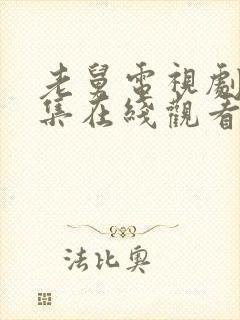 老舅電視劇
集在綫觀看
法比奧